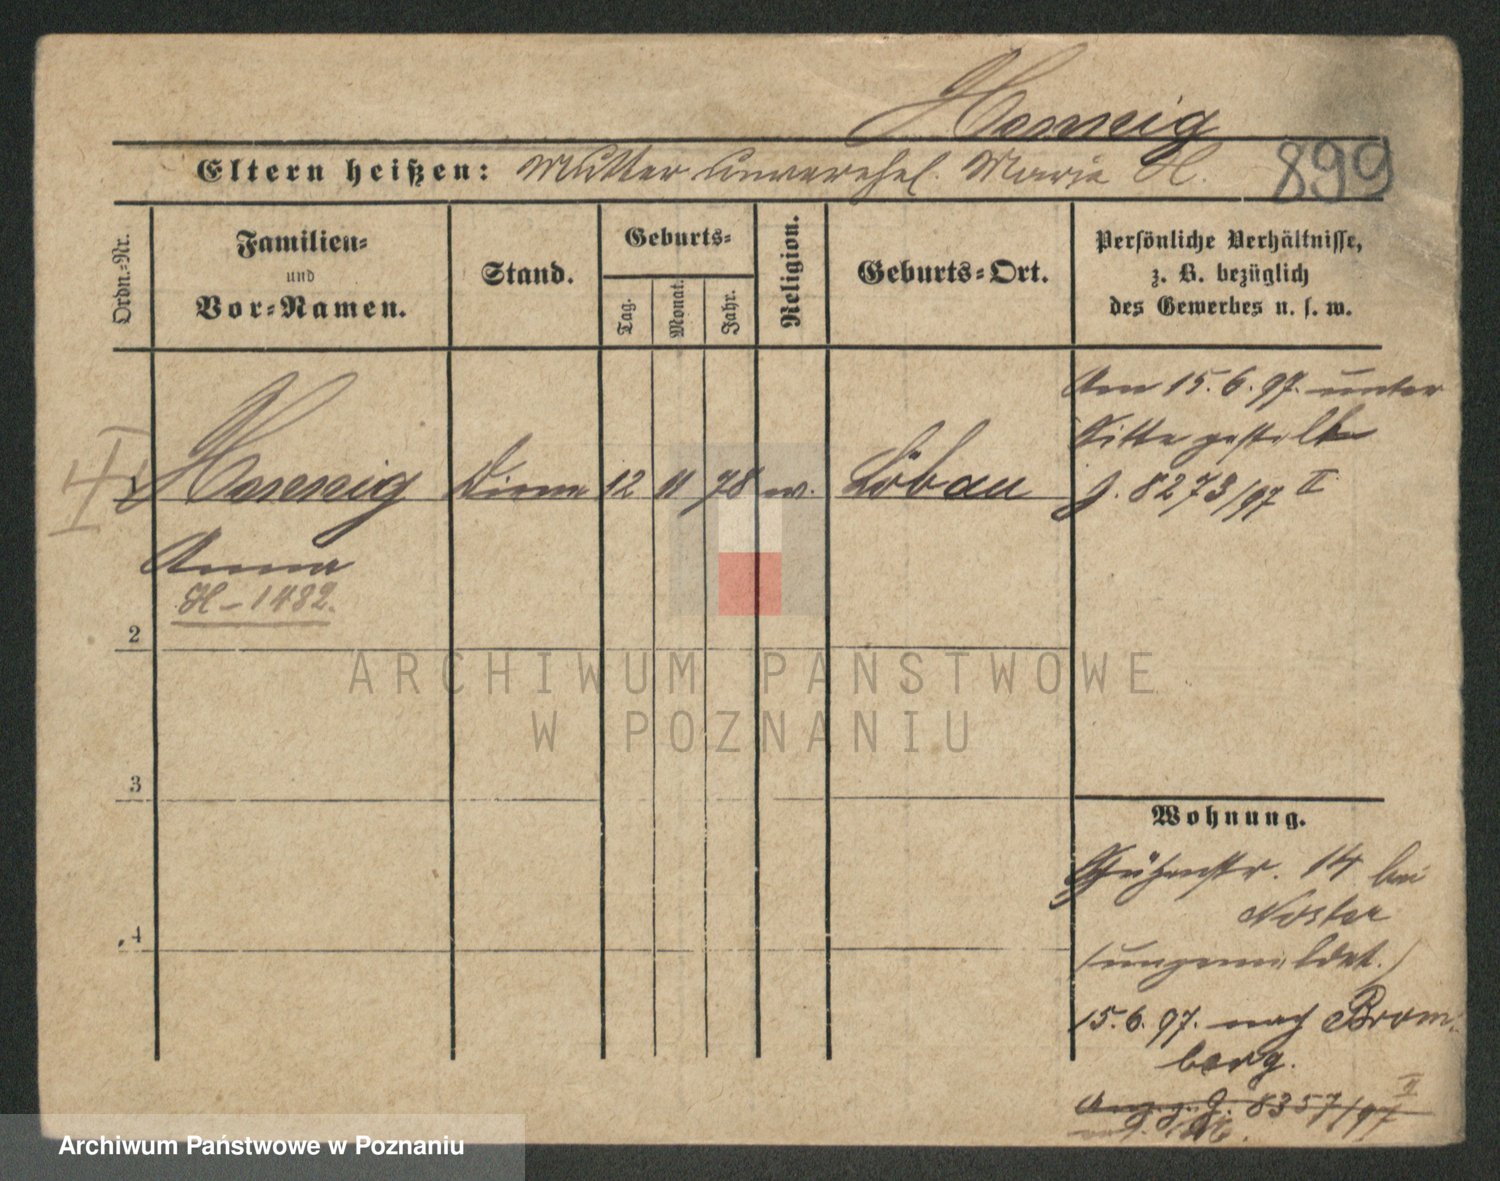 Henseig
899
Eltern heißen: Mutter unverehel. Marie H.
Ordn.-Nr.
Familien-
und
Vor-Namen.
Stand.
Geburts-
Tag.
Monat.
Jahr.
Religion.
Geburts-Ort.
Persönliche Verhältnisse,
z. B. bezüglich
des Gewerbes u. s. w.
1 Henseig Dirne 12 11 78 ev. Löbau
Anna
H - 1482.
Am 15. 6. 97. unter
Sitte gestellt
J. 8273/97 II
2
3
4
Wohnung.
Schützenstr. 14 bei
Noster
(ungemeldet.)
15. 6. 97. nach Brom-
berg.
J. 8357/97 II
ARCHIWUM PAŃSTWOWE
W POZNANIU
Archiwum Państwowe w Poznaniu